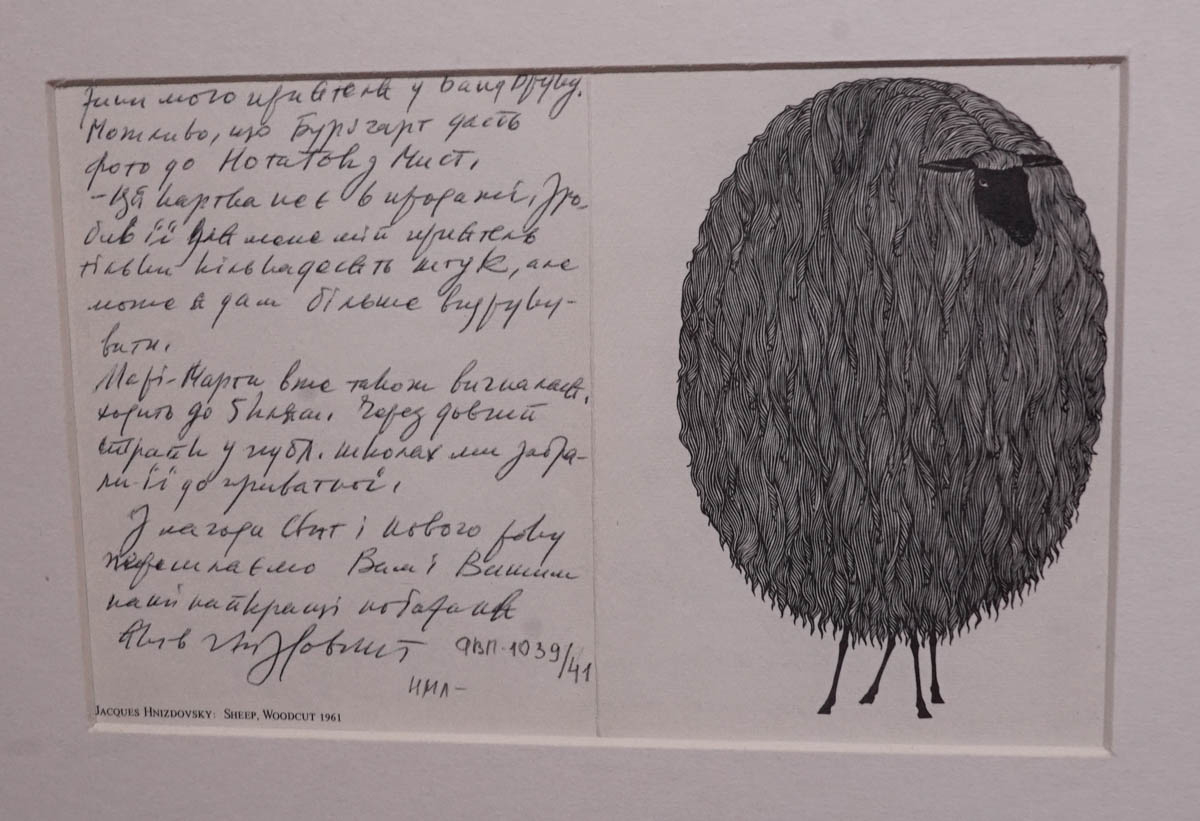 мого приятеля у
Можливо, що Бурггарт дасть
фото до Нотаток з Мист.
- Ця картка не є в продажі, Зро-
бив її для мене мій приятель
тільки кільканадцять штук, але
може я дам більше видруку-
вати.
Марі-Марти вже також вигналась,
ходить до 5 кляси. Через довгий
страйк у публ. школах ми забра-
ли її до приватної.
З нагоди Свят і Нового року
пересилаємо Вам і Вашим
наші найкращі побажання
Яків Гніздовський ФВП-1039/41
НМЛ-
JACQUES HNIZDOVSKY: SHEEP, WOODCUT 1961